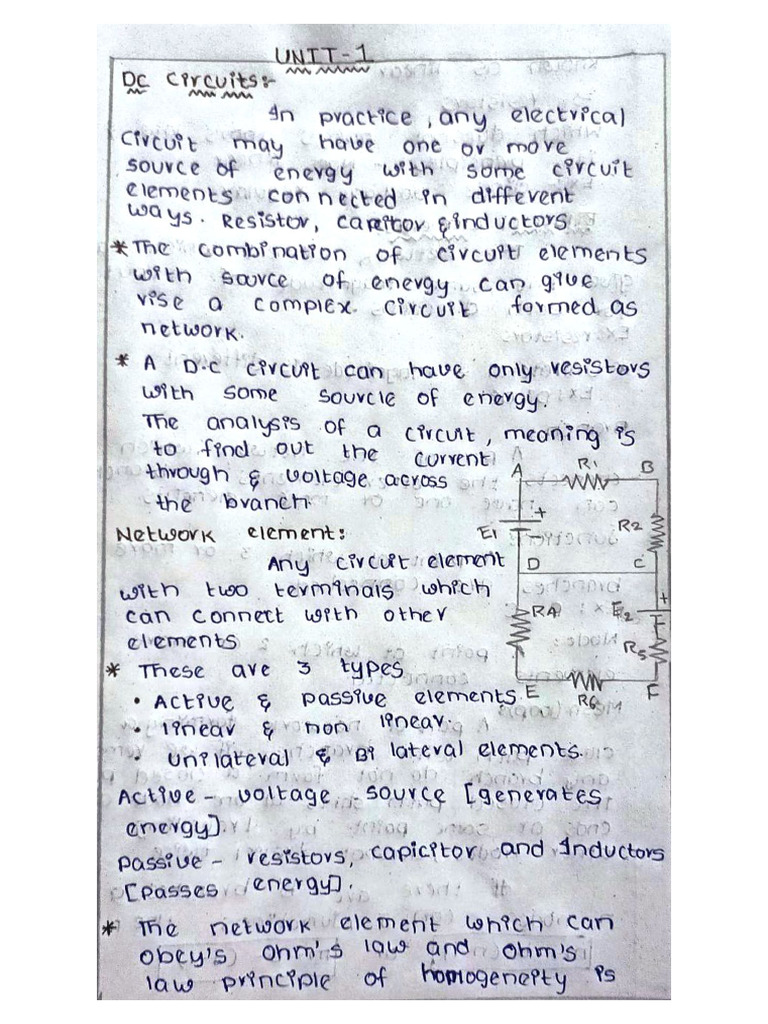 UNIT-1
DC Circuits:-
In practice, any electrical
circuit may have one or more
source of energy with some circuit
elements connected in different
ways. Resistor, capcitor & inductors
* The combination of circuit elements
with source of energy can give
rise a complex circuit formed as
network.
* A D.C circuit can have only resistors
with some sourcle of energy.
The analysis of a circuit, meaning is
to find out the current
through & voltage across
the branch.
A R1 B
E1 + R2
D C
R4 E2 +
R5
E R6 F
Network element:
Any circuit element
with two terminals which
can connect with other
elements
* These are 3 types
• Active & passive elements
• linear & non linear.
• unilateral & Bi lateral elements.
Active - voltage source [generates
energy].
passive - resistors, capicitor and Inductors
[passes energy].
* The network element which can
obey's ohm's law and ohm's
law principle of homogeneity is